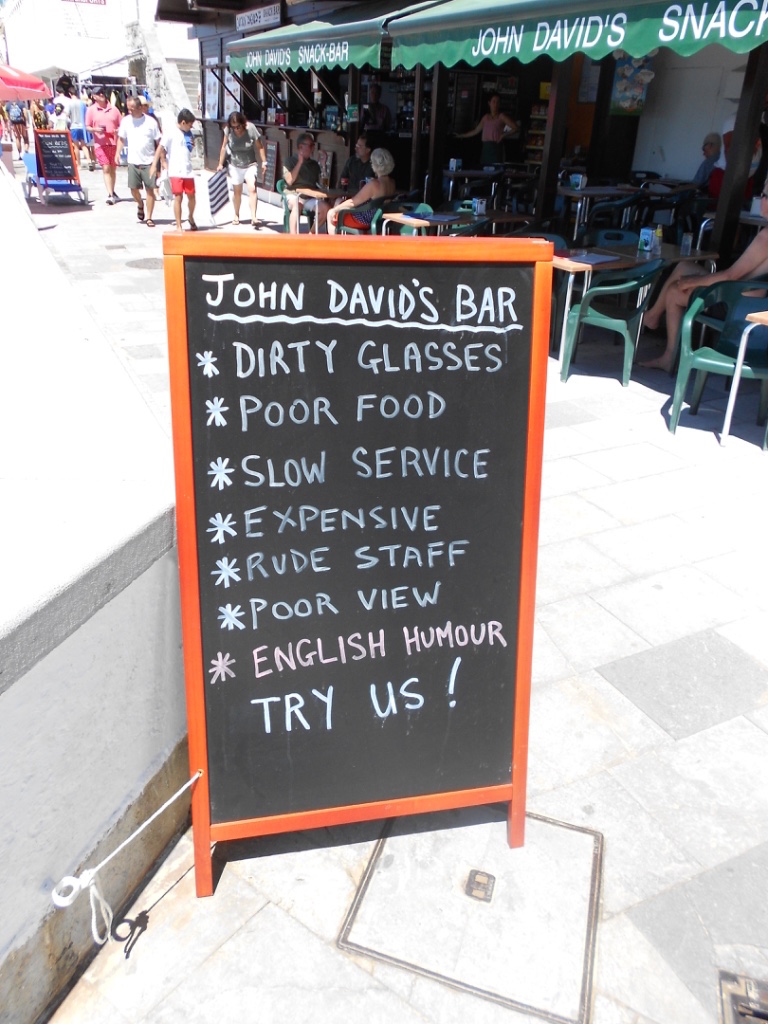 JOHN DAVID'S SNACK-BAR
JOHN DAVID'S SNACK
JOHN DAVID'S BAR
* DIRTY GLASSES
* POOR FOOD
* SLOW SERVICE
* EXPENSIVE
* RUDE STAFF
* POOR VIEW
* ENGLISH HUMOUR
TRY US!